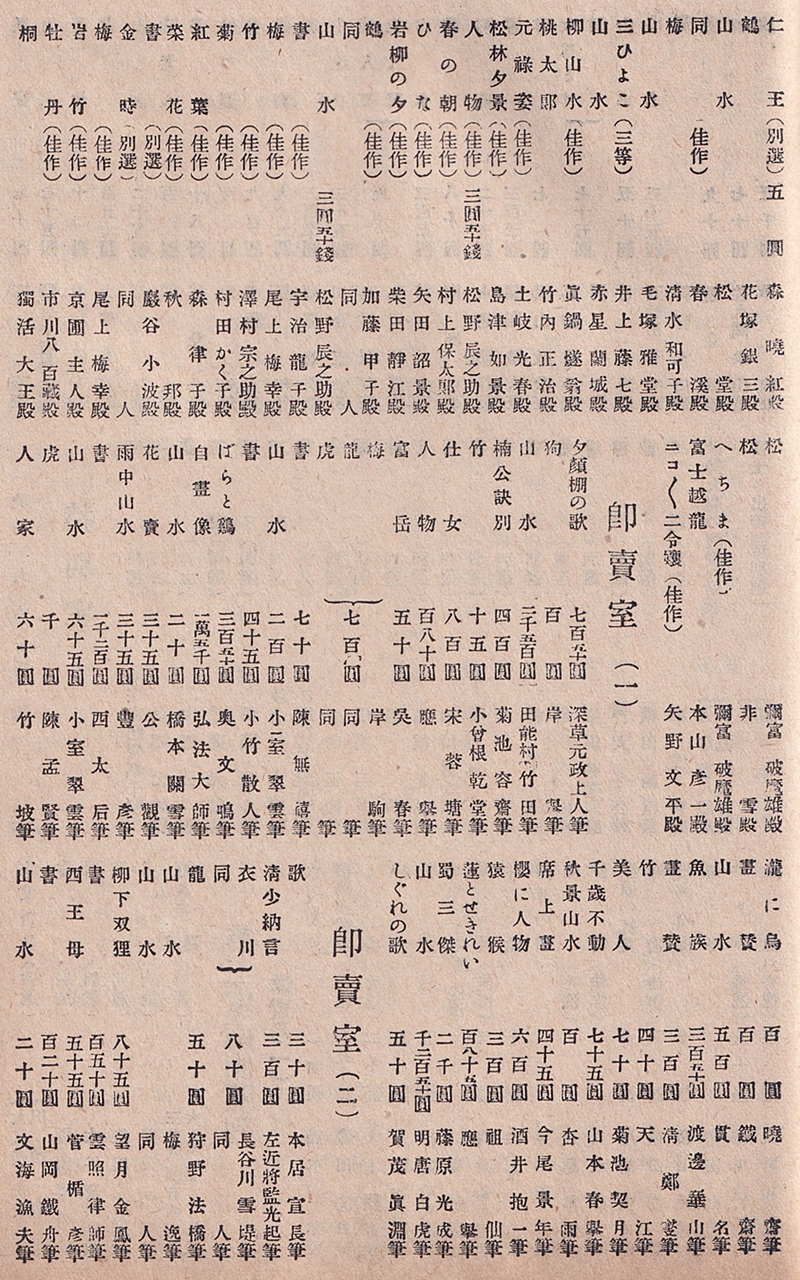 仁王（別選）五圓 森曉紅殿
鶴 花塚銀三殿
山水 松堂殿
同（佳作） 春溪殿
梅 清水和可子殿
山水 毛塚雅堂殿
三ひよこ（三等） 井上藤七殿
山水 赤星蘭城殿
柳山水（佳作） 眞鍋翁殿
桃太郎 竹內正治殿
元祿姿（佳作） 土岐光春殿
松林夕景（佳作） 島津如景殿
人物（佳作）三圓五十錢 松野辰之助殿
春の朝（佳作） 村上保太郎殿
ひな（佳作） 矢田韶景殿
岩柳の夕（佳作） 柴田靜江殿
鶴（佳作） 加藤甲子殿
同 同人
山水 三圓五十錢 松野辰之助殿
書（佳作） 宇治龍子殿
梅（佳作） 尾上梅幸殿
竹（佳作） 澤村宗之助殿
菊（佳作） 村田かく子殿
紅葉（佳作） 森律子殿
榮花（佳作） 秋邦殿
書（別選） 巖谷小波殿
金時（別選） 同人
梅（佳作） 尾上梅幸殿
岩竹（佳作） 京圃主人殿
牡丹（佳作） 市川八百藏殿
桐 獨活大王殿
松 彌富破魔雄殿
松 非雪殿
へちま（佳作） 彌富破魔雄殿
富士越龍 本山彥一殿
ニコ〱二令孃（佳作） 矢野文平殿
卽賣室（一）
夕顏棚の歌 七百五十圓 深草元政上人筆
狗 百圓 岸駒筆
山水 二千五百圓 田能村竹田筆
楠公訣別 四百圓 菊池容齋筆
竹 十五圓 小曾根乾堂筆
仕女 八百圓 宋蓉塘筆
人物 百八十圓 應擧筆
富岳 五十圓 吳春筆
梅 岸駒筆
龍 七百圓 同筆
虎 同筆
書 七十圓 陳無禧筆
山水 二百圓 小室翠雲筆
書 四十五圓 小竹散人筆
ばらと鷄 三百五十圓 奧文鳴筆
自畫像 一萬五千圓 弘法大師筆
山水 二十圓 橋本關雪筆
花賣 三十五圓 公觀筆
雨中山水 三十五圓 豐彥筆
書 一千二百圓 西太后筆
山水 六十五圓 小室翠雲筆
虎 千圓 陳孟賢筆
人家 六十圓 竹坡筆
瀧に鳥 百圓 曉齋筆
畫賛 百圓 鐵齋筆
山水 五百圓 貫名筆
魚族 三百五十圓 渡邊崋山筆
畫賛 三百圓 淸鄭燮筆
竹 四十圓 天江筆
美人 七十圓 菊池契月筆
千歲不動 七十五圓 山本春擧筆
秋景山水 百圓 杏雨筆
席上畫 四十五圓 今尾景年筆
櫻に人物 六百圓 酒井抱一筆
猿猴 三百圓 祖仙筆
蓮とせきれい 百八十五圓 應擧筆
蜀三傑 二千圓 藤原光成筆
山水 千二百五十圓 明唐白虎筆
しぐれの歌 五十圓 賀茂眞淵筆
卽賣室（二）
歌 三十圓 本居宣長筆
淸少納言 三百圓 左近將監光起筆
衣川 八十圓 長谷川雪堤筆
同 同人筆
龍 五十圓 狩野法橋筆
山水 梅逸筆
山水 同人筆
柳下双狸 八十五圓 望月金鳳筆
書 百五十圓 雲照律師筆
西王母 五十五圓 菅楯彥筆
書 百二十圓 山岡鐵舟筆
山水 二十圓 文海漁夫筆